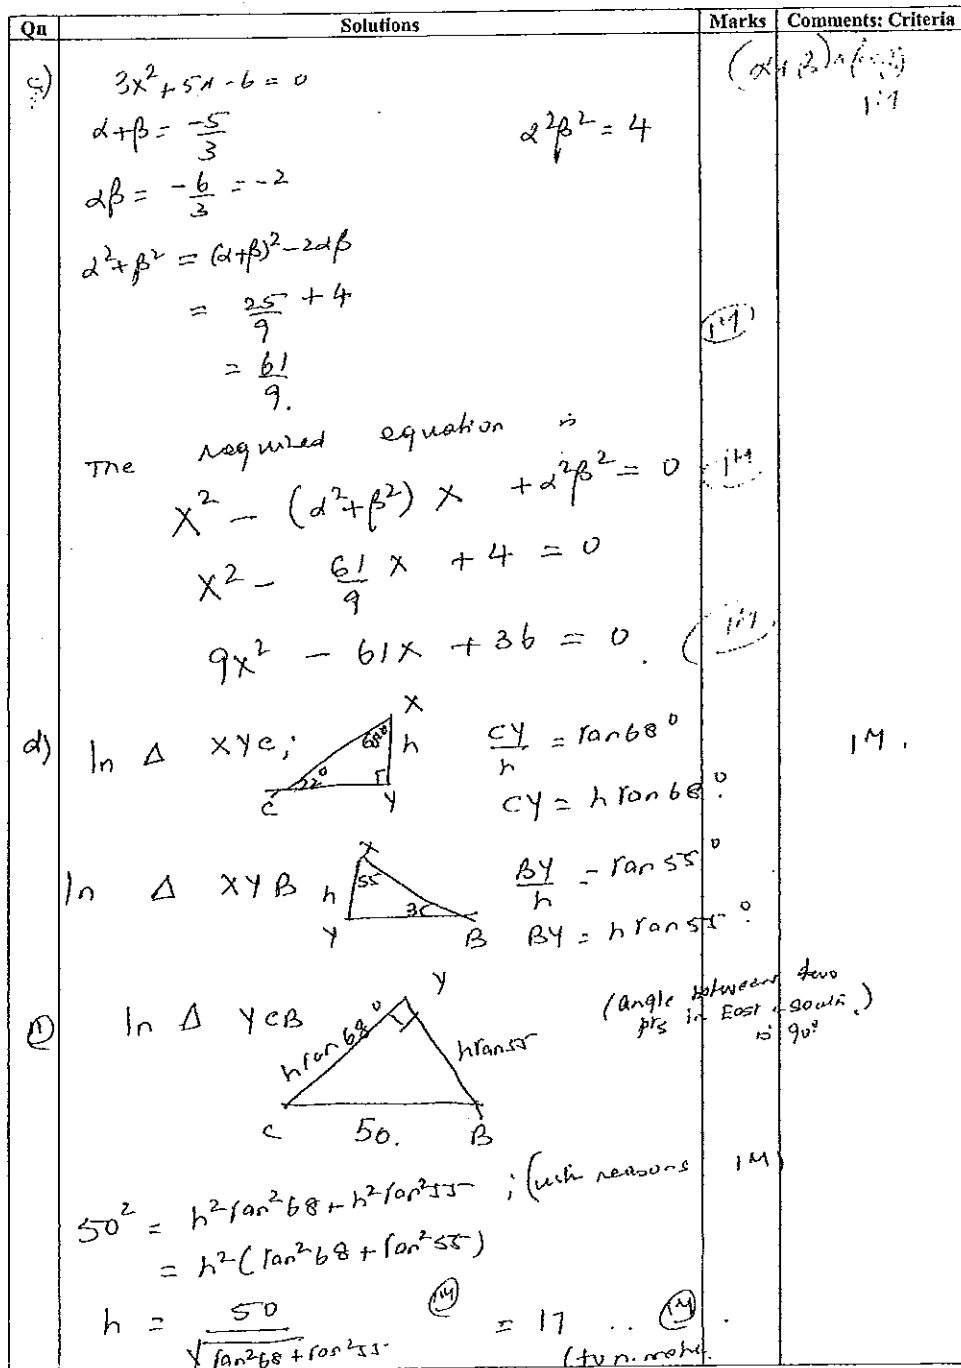 Qn Solutions Marks Comments: Criteria
c) 3x² + 5x - 6 = 0
α+β = -5/3 α²β² = 4
αβ = -6/3 = -2
α²+β² = (α+β)² - 2αβ
= 25/9 + 4
= 61/9.
1M
The required equation is
X² - (α²+β²) X + α²β² = 0 1M
X² - 61/9 X + 4 = 0
9X² - 61X + 36 = 0. 1M
d) In Δ XYC; X 68° h 22° C Y CY/h = tan 68° 1M.
CY = h tan 68°.
In Δ XYB X 55 h 35 Y B BY/h = tan 55°
BY = h tan 55°.
(i) In Δ YCB Y h tan 68° h tan 55 C 50. B
(angle between two
pts in East & South
is 90°)
50² = h² tan² 68 + h² tan² 55 ; (with reasons 1M)
= h² (tan² 68 + tan² 55)
h = 50/√tan² 68 + tan² 55 1M = 17 .. 1M .